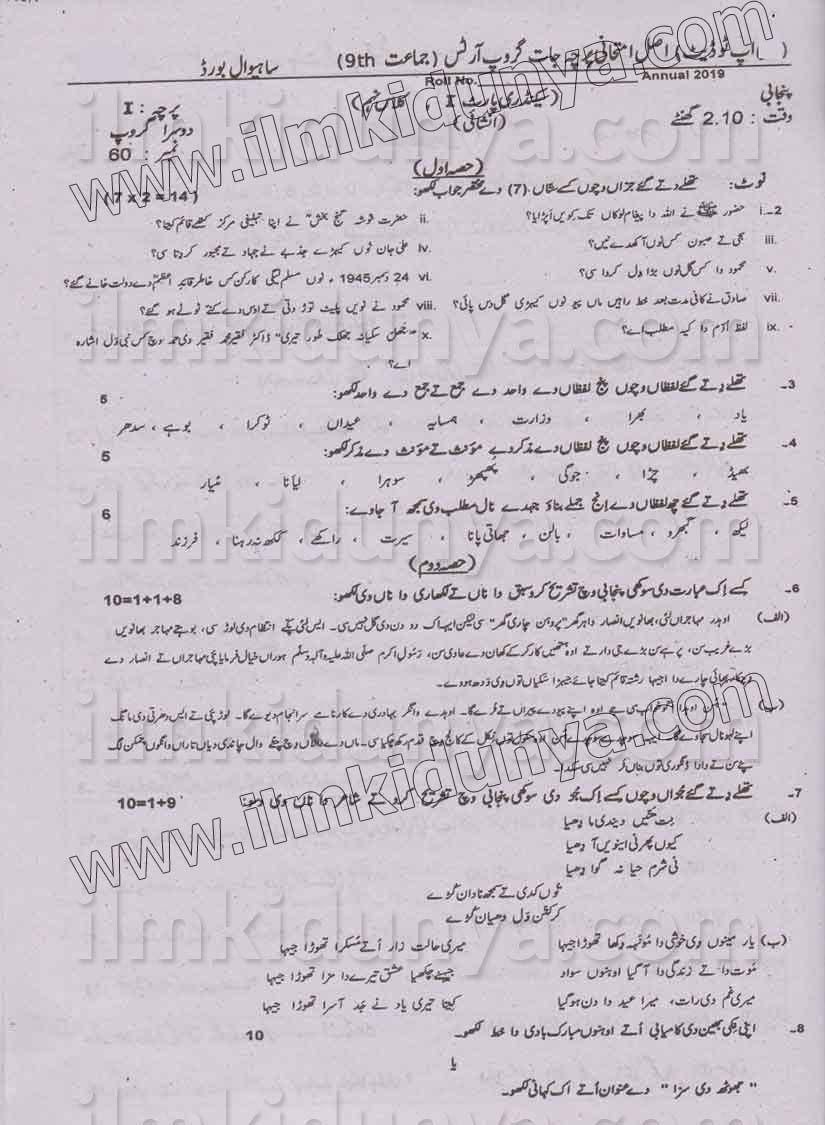 (اپ ٹو ڈیٹ) اصل امتحانی پرچہ جات گروپ آرٹس (جماعت 9th) ساہیوال بورڈ
Roll No. Annual 2019
پنجابی (سیکنڈری پارٹ I ، کلاس نہم) پرچہ : I
وقت : 2.10 گھنٹے (انشائی) دوسرا گروپ
نمبر : 60
(حصہ اول)
نوٹ: تھلے دتے گئے جزاں وچوں کسے ستاں (7) دے مختصر جواب لکھو: (7 x 2 = 14)
2۔ i. حضور ﷺ نے اللہ دا پیغام لوکاں تک کیویں اپڑایا؟ ii. حضرت نوشہ گنج بخش نے اپنا تبلیغی مرکز کتھے قائم کیتا؟
iii. جی تے صیون کس نوں آکھدے نیں؟ iv. علی جان نوں کیہڑے جذبے نے جہاد تے مجبور کر دتا سی؟
v. محمود دا کس گل نوں بڑا دل کردا سی؟ vi. 24 دسمبر 1945ء نوں مسلم لیگی کارکن کس خاطر قائداعظم دے دولت خانے گئے؟
vii. صادق نے کافی مدت بعد خط راہیں ماں پیو نوں کیہڑی گل دس پائی؟ viii. محمود نے نویں پلیٹ توڑ دتی تے اوس دے کتنے ٹوٹے ہو گئے؟
ix. لفظ اوم دا کیہ مطلب اے؟ x. "جھل سکیا نہ جھلک طور تیری" ڈاکٹر فقیر محمد فقیر دی حمد وچ کس نبی ول اشارہ
اے؟
3۔ تھلے دتے گئے لفظاں وچوں پنج لفظاں دے واحد دے جمع تے جمع دے واحد لکھو: 5
یاد ، بھرا ، وزارت ، ہمسایہ ، عیداں ، ٹوکرا ، بوہے ، سدھر
4۔ تھلے دتے گئے لفظاں وچوں پنج لفظاں دے مذکر دے مؤنث تے مؤنث دے مذکر لکھو: 5
بھیڈ ، چڑا ، جوگی ، پھپھڑ ، سوہرا ، لیانا ، مٹیار
5۔ تھلے دتے گئے چھ لفظاں دے انج جملے بناؤ جیہدے نال مطلب وی سمجھ آ جاوے: 6
لیکھ ، گبھرو ، مساوات ، بالن ، جھاتی پانا ، سیرت ، راکھے ، ککھ نہ رہنا ، فرزند
(حصہ دوم)
6۔ کسے اک عبارت دی سوکھی پنجابی وچ تشریح کرو سبق دا ناں تے لکھاری دا ناں وی لکھو: 10=1+1+8
(الف) اوہدر مہاجراں لئی، بھانویں انصار دا ہر گھر "پروہن چاری گھر" سی لیکن ایہہ اک دو دن دی گل نہیں سی۔ ایس لئی پکے انتظام دی لوڑ سی، بوہتے مہاجر بھانویں
بڑے غریب سن، پر ہے سن بڑے جی دار تے اوہ ہتھیں کار کر کے کھان دے عادی سن، رسول اکرم صلی اللہ علیہ وآلہ وسلم ہوراں خیال فرمایا پئی مہاجراں تے انصار دے
وچکار بھائی چارے دا اجیہا رشتہ قائم کیتا جائے جیہڑا سکیاں توں وی ودھ ہووے۔
(ب) ہن اوہدا اکو خواب سی جے اوہ اپنے پیو دے پیراں تے ٹرے گا۔ اوہدے وانگر بہادری دے کارنامے سرانجام دیوے گا۔ لوڑ پئی تے ایس دھرتی دی مانگ
اپنے لہو نال سجاوے گا۔ اوہ سکول توں نکل کے کالج وچ قدم رکھ چکیا سی۔ ماں دے والاں وچ چٹے وال چاندی دیاں تاراں وانگوں چمکن لگ
پئے سن تے دادا ڈنگوری توں بناں ٹر نہیں سی سکدا۔
7۔ تھلے دتے گئے جزاں وچوں کسے اک جز دی سوکھی پنجابی وچ تشریح کرو تے شاعر دا ناں وی دسو: 10=1+9
(الف) بت متیں دیندی ما دھیا
کیوں پھرنی اینویں آ دھیا
نی شرم حیا نہ گوا دھیا
توں کدی تے سمجھ نادان کڑے
کر کتن ول دھیان کڑے
(ب) یار مینوں وی خوشی دا مونہہ وکھا تھوڑا جیہا میری حالت زار اتے مسکرا تھوڑا جیہا
موت دا تے زندگی دا آ گیا اوہنوں سواد جینے چکھیا عشق تیرے دا مزا تھوڑا جیہا
میری غم دی رات، میرا عید دا دن ہو گیا کیتا تیری یاد نے جد آسرا تھوڑا جیہا
8۔ اپنی نکی بھین دی کامیابی اتے اوہنوں مبارک بادی دا خط لکھو۔ 10
یا
"جھوٹھ دی سزا" دے عنوان اتے اک کہانی لکھو۔
www.ilmkidunya.com